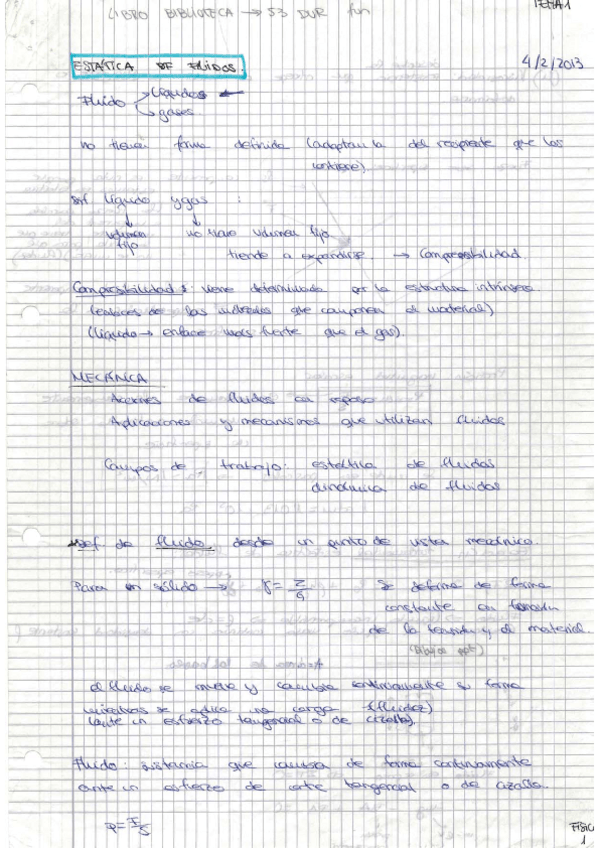 LIBRO BIBLIOTECA → 53 DUR fun
TEMA 1
ESTÁTICA DE FLUIDOS.
4/2/2013
Fluido líquidos ←
gases
no tienen forma definida (adoptan la del recipiente que los
contiene)
líquido y gas :
volumen no tiene volumen fijo
fijo
tiende a expandirse. → Compresibilidad.
Compresibilidad : viene determinada por la estructura intrínseca
(enlaces de las moléculas que componen el material)
(líquido → enlace más fuerte que el gas).
MECÁNICA
Acciones de fluidos en reposo
Aplicaciones y mecanismos que utilizan fluidos
Campos de trabajo: estática de fluidos
dinámica de fluidos
Def de fluido desde un punto de vista mecánico.
Para un sólido → γ = τ/G Se deforma de forma
constante en función
de la tensión y el material.
(Dibujo ppt)
el fluido se mueve y cambia continuamente su forma
mientras se aplica una carga (fluidez)
(ante un esfuerzo tangencial o de cizalla).
Fluido: sustancia que cambia de forma continuamente
ante un esfuerzo de corte tangencial o de cizalla.
P = F/S
FÍSICA
1